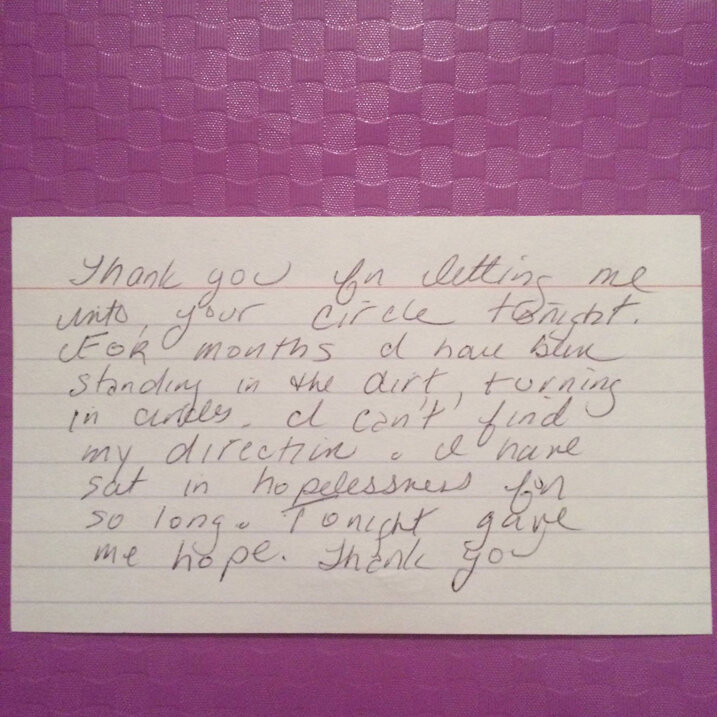 Thank you for letting me
into your circle tonight.
For months I have been
standing in the dirt, turning
in circles. I can't find
my direction. I have
sat in hopelessness for
so long. Tonight gave
me hope. Thank you